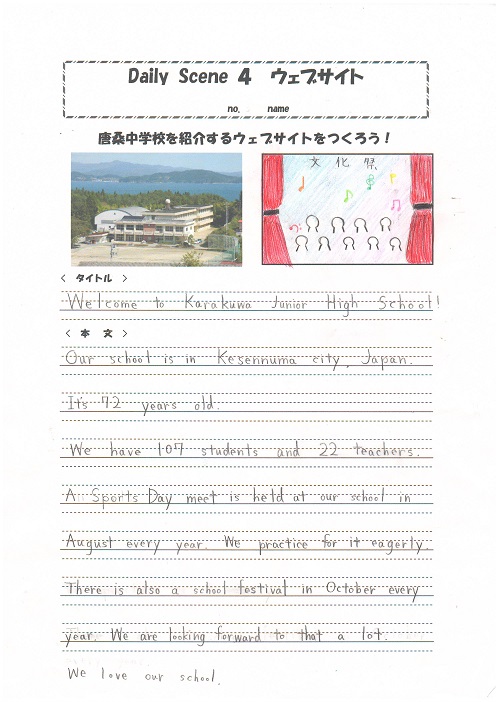 Daily Scene 4 ウェブサイト
no. name
唐桑中学校を紹介するウェブサイトをつくろう！
文化祭
< タイトル >
Welcome to Karakuwa Junior High School!
< 本 文 >
Our school is in Kesennuma city, Japan.
It's 72 years old.
We have 107 students and 22 teachers.
A Sports Day meet is held at our school in
August every year. We practice for it eagerly.
There is also a school festival in October every
year. We are looking forward to that a lot.
We love our school.